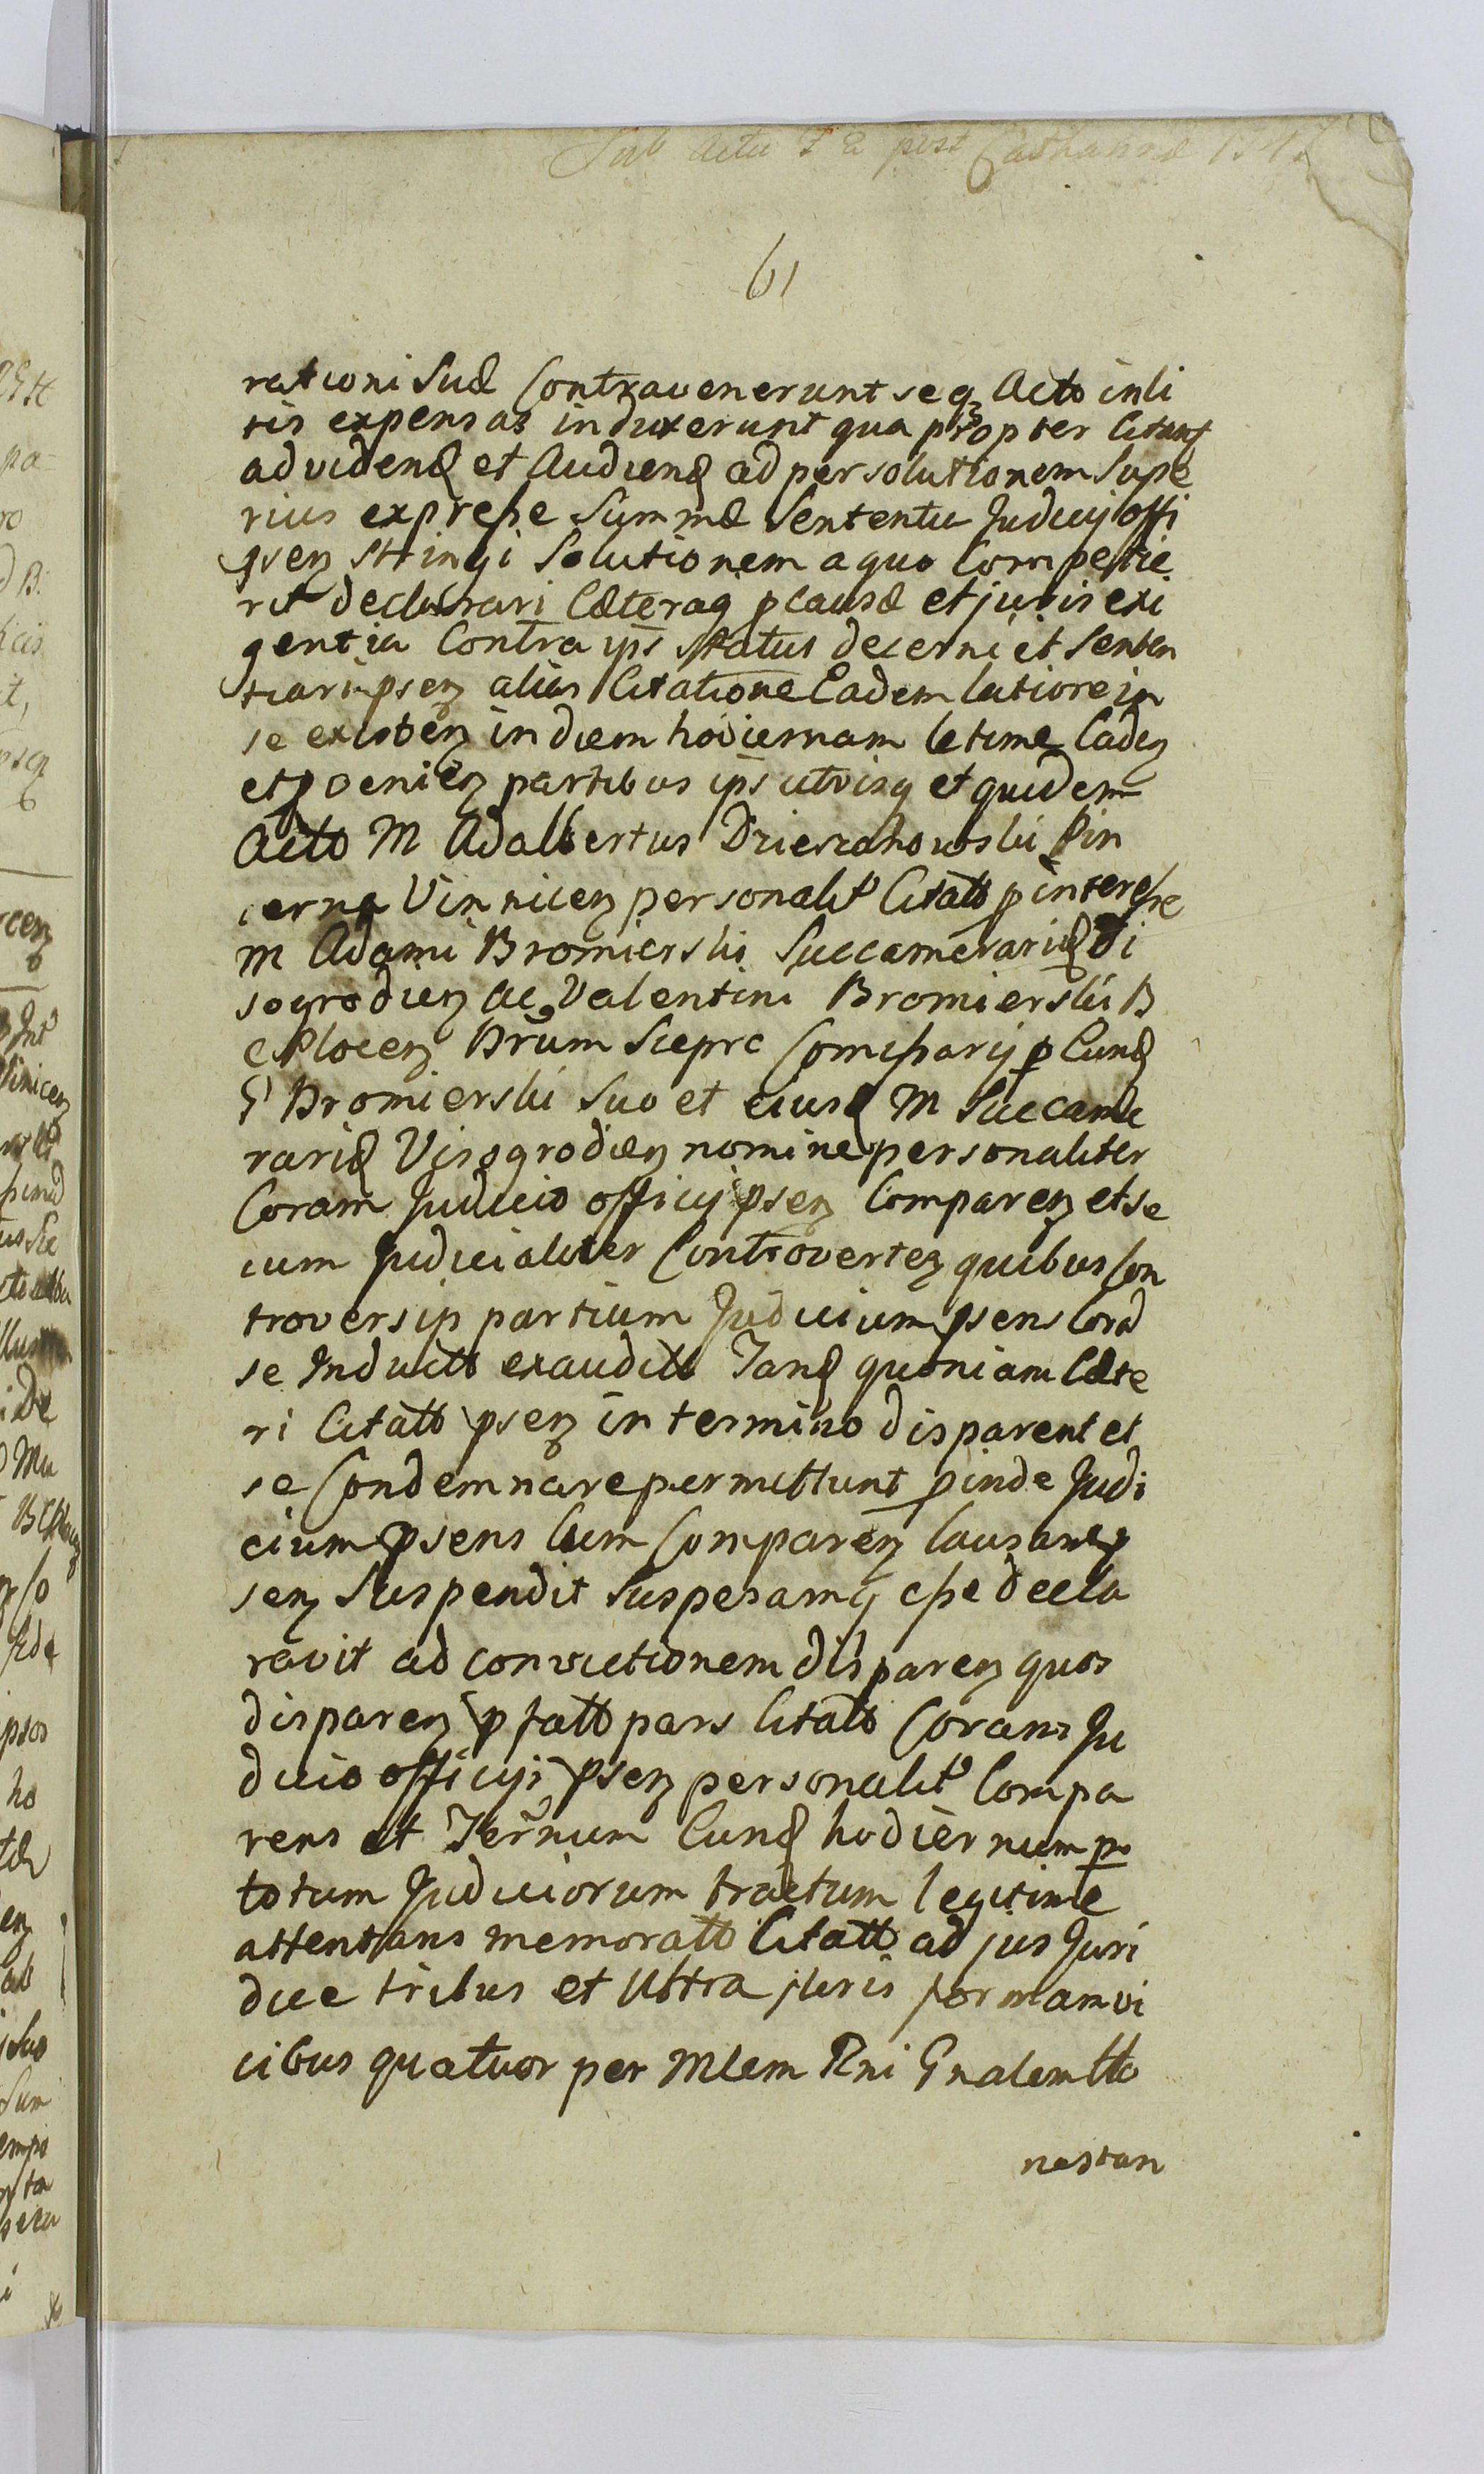 Sub Actu F a post
61
rationi suæ Contravenerunt seq Acto in li
tis expensas induxerunt qua propter Citant
ad videnđ et Audienđ ad persolutionem supe
rius expresse Summæ Sententia Judicij offi
psen stringi Solutionem a quo Competie
rit declarari Cæteraq p causæ et juris exi
gentia Contra ips Status decerni et senten
tiari psen alias Citatione Eadem latiore in
se existen in diem hodiernam letime Caden
et pvenien partibus ips utrisq et quidem
Acto M Adalbertus Drieszchowski Pin
cerna Vinnicen personalit Citatt p interesse
M Adami Bromierski Succamerarij Vi
sogrodien ac Valentini Bromierski B
C Plocen Brum Scepre Comissarij p Eunđ
G Bromierski suo et eiusđ M Succame
rarij Visogrodien nomine personaliter
Coram Judicio officij psen Comparen et se
cum Judicialiter Controverten quibus Con
troversijs partium Judicium psens Cora
se Inductt exauditt Tanđ quoniam Cæte
ri Citatt psen in termino disparent et
se Condemnare permittunt pinde Judi
cium psens Cum Comparen Causam p
sen Suspendit suspesamq esse decla
ravit ad convictionem disparen quos
disparen pfatt pars Citatt Coram Ju
dicio officiji psen personalit Compa
rens et Ternum Eunđ hodiernum p
totum Judiciorum tractum legitime
attentans memoratt Citatt ad jus Juri
dice tribus et Ultra juris formam vi
cibus quatuor per Mlem Rni Gnalem tto
nastan